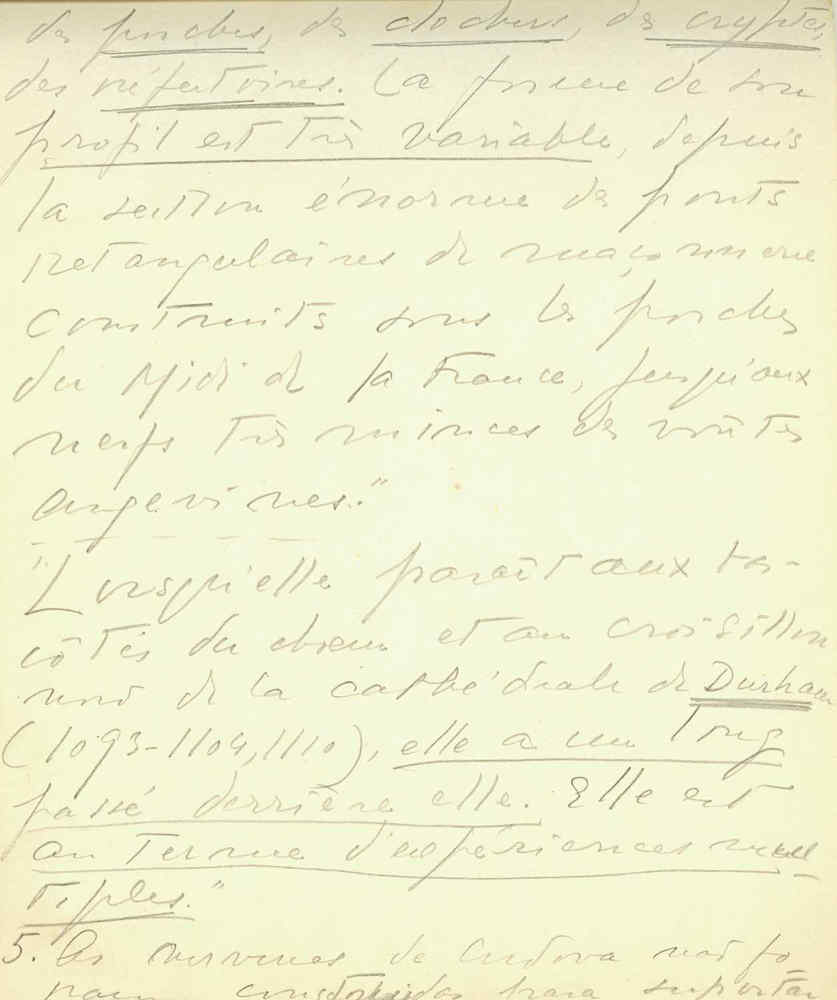 des porches, des clochers, des cryptes,
des réfectoires. La forme de son
profil est très variable, depuis
la section énorme des ponts
rectangulaires de maçonnerie
construits sous les porches
du Midi de la France, jusqu'aux
nerfs très minces des voûtes
angevines."
"Lorsqu'elle paraît aux bas-
côtés du choeur et au croisillon
nord de la cathédrale de Durham
(1093-1104, 1110), elle a un long
passé derrière elle. Elle est
au terme d'expériences mul
tiples."
5. As nervuras de Cudova não fo
ram construidas para suportar